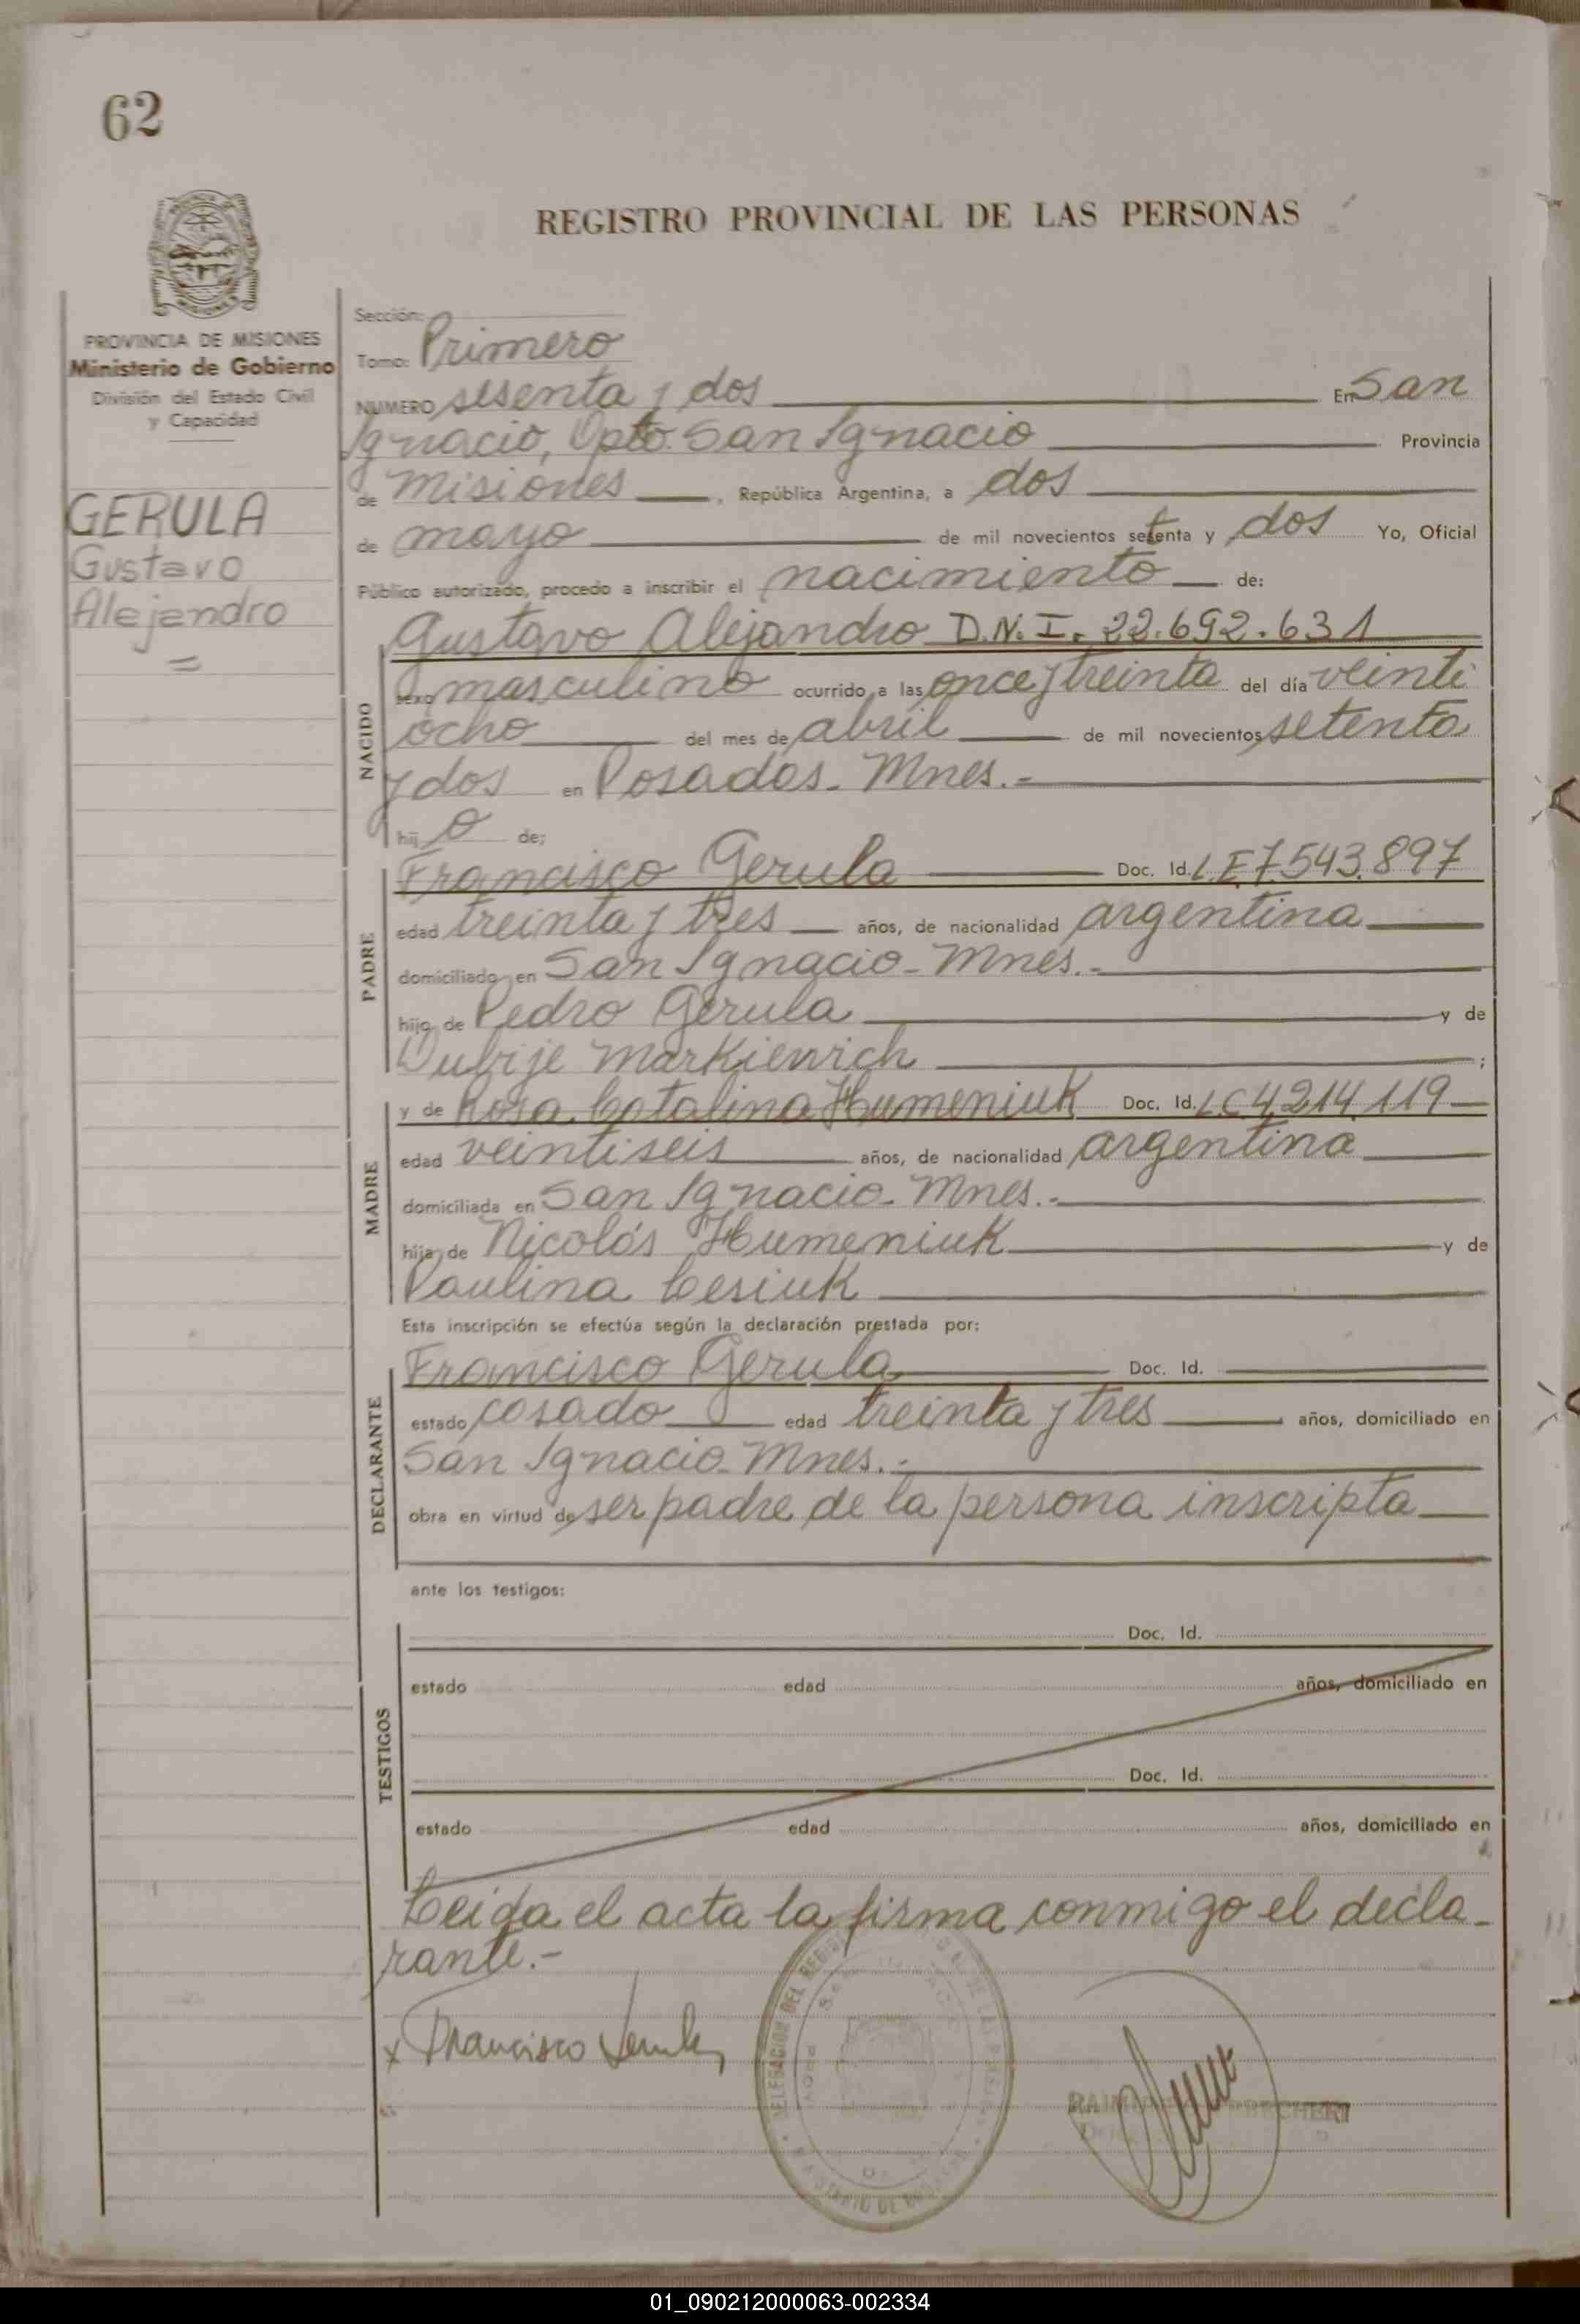 62
REGISTRO PROVINCIAL DE LAS PERSONAS
PROVINCIA DE MISIONES
Ministerio de Gobierno
División del Estado Civil
y Capacidad
GERULA
Gustavo
Alejandro
=
Sección:
Tomo: Primero
NUMERO sesenta y dos En San
Ignacio, Dpto. San Ignacio Provincia
de Misiones, República Argentina, a dos
de mayo de mil novecientos setenta y dos Yo, Oficial
Público autorizado, procedo a inscribir el nacimiento de:
NACIDO
Gustavo Alejandro D.N.I. 22.692.631
sexo masculino ocurrido a las once y treinta del día veinti
ocho del mes de abril de mil novecientos setenta
y dos en Posadas - Mnes.-
hij o de;
PADRE
Francisco Gerula Doc. Id. L.E 7.543.897
edad treinta y tres años, de nacionalidad argentina
domiciliado en San Ignacio - Mnes.-
hijo de Pedro Gerula y de
Markievich ;
MADRE
y de Rosa Catalina Humeniuk Doc. Id. L.C 4.214.119
edad veintiseis años, de nacionalidad argentina
domiciliada en San Ignacio - Mnes.-
hija de Nicolás Humeniuk y de
Paulina Lesiuk
Esta inscripción se efectúa según la declaración prestada por:
DECLARANTE
Francisco Gerula Doc. Id.
estado casado edad treinta y tres años, domiciliado en
San Ignacio - Mnes.-
obra en virtud de ser padre de la persona inscripta
ante los testigos:
TESTIGOS
Doc. Id.
estado edad años, domiciliado en
Doc. Id.
estado edad años, domiciliado en
Leida el acta la firma conmigo el decla-
rante.-
x Francisco Gerula
DELEGACION DEL
01_090212000063-002334